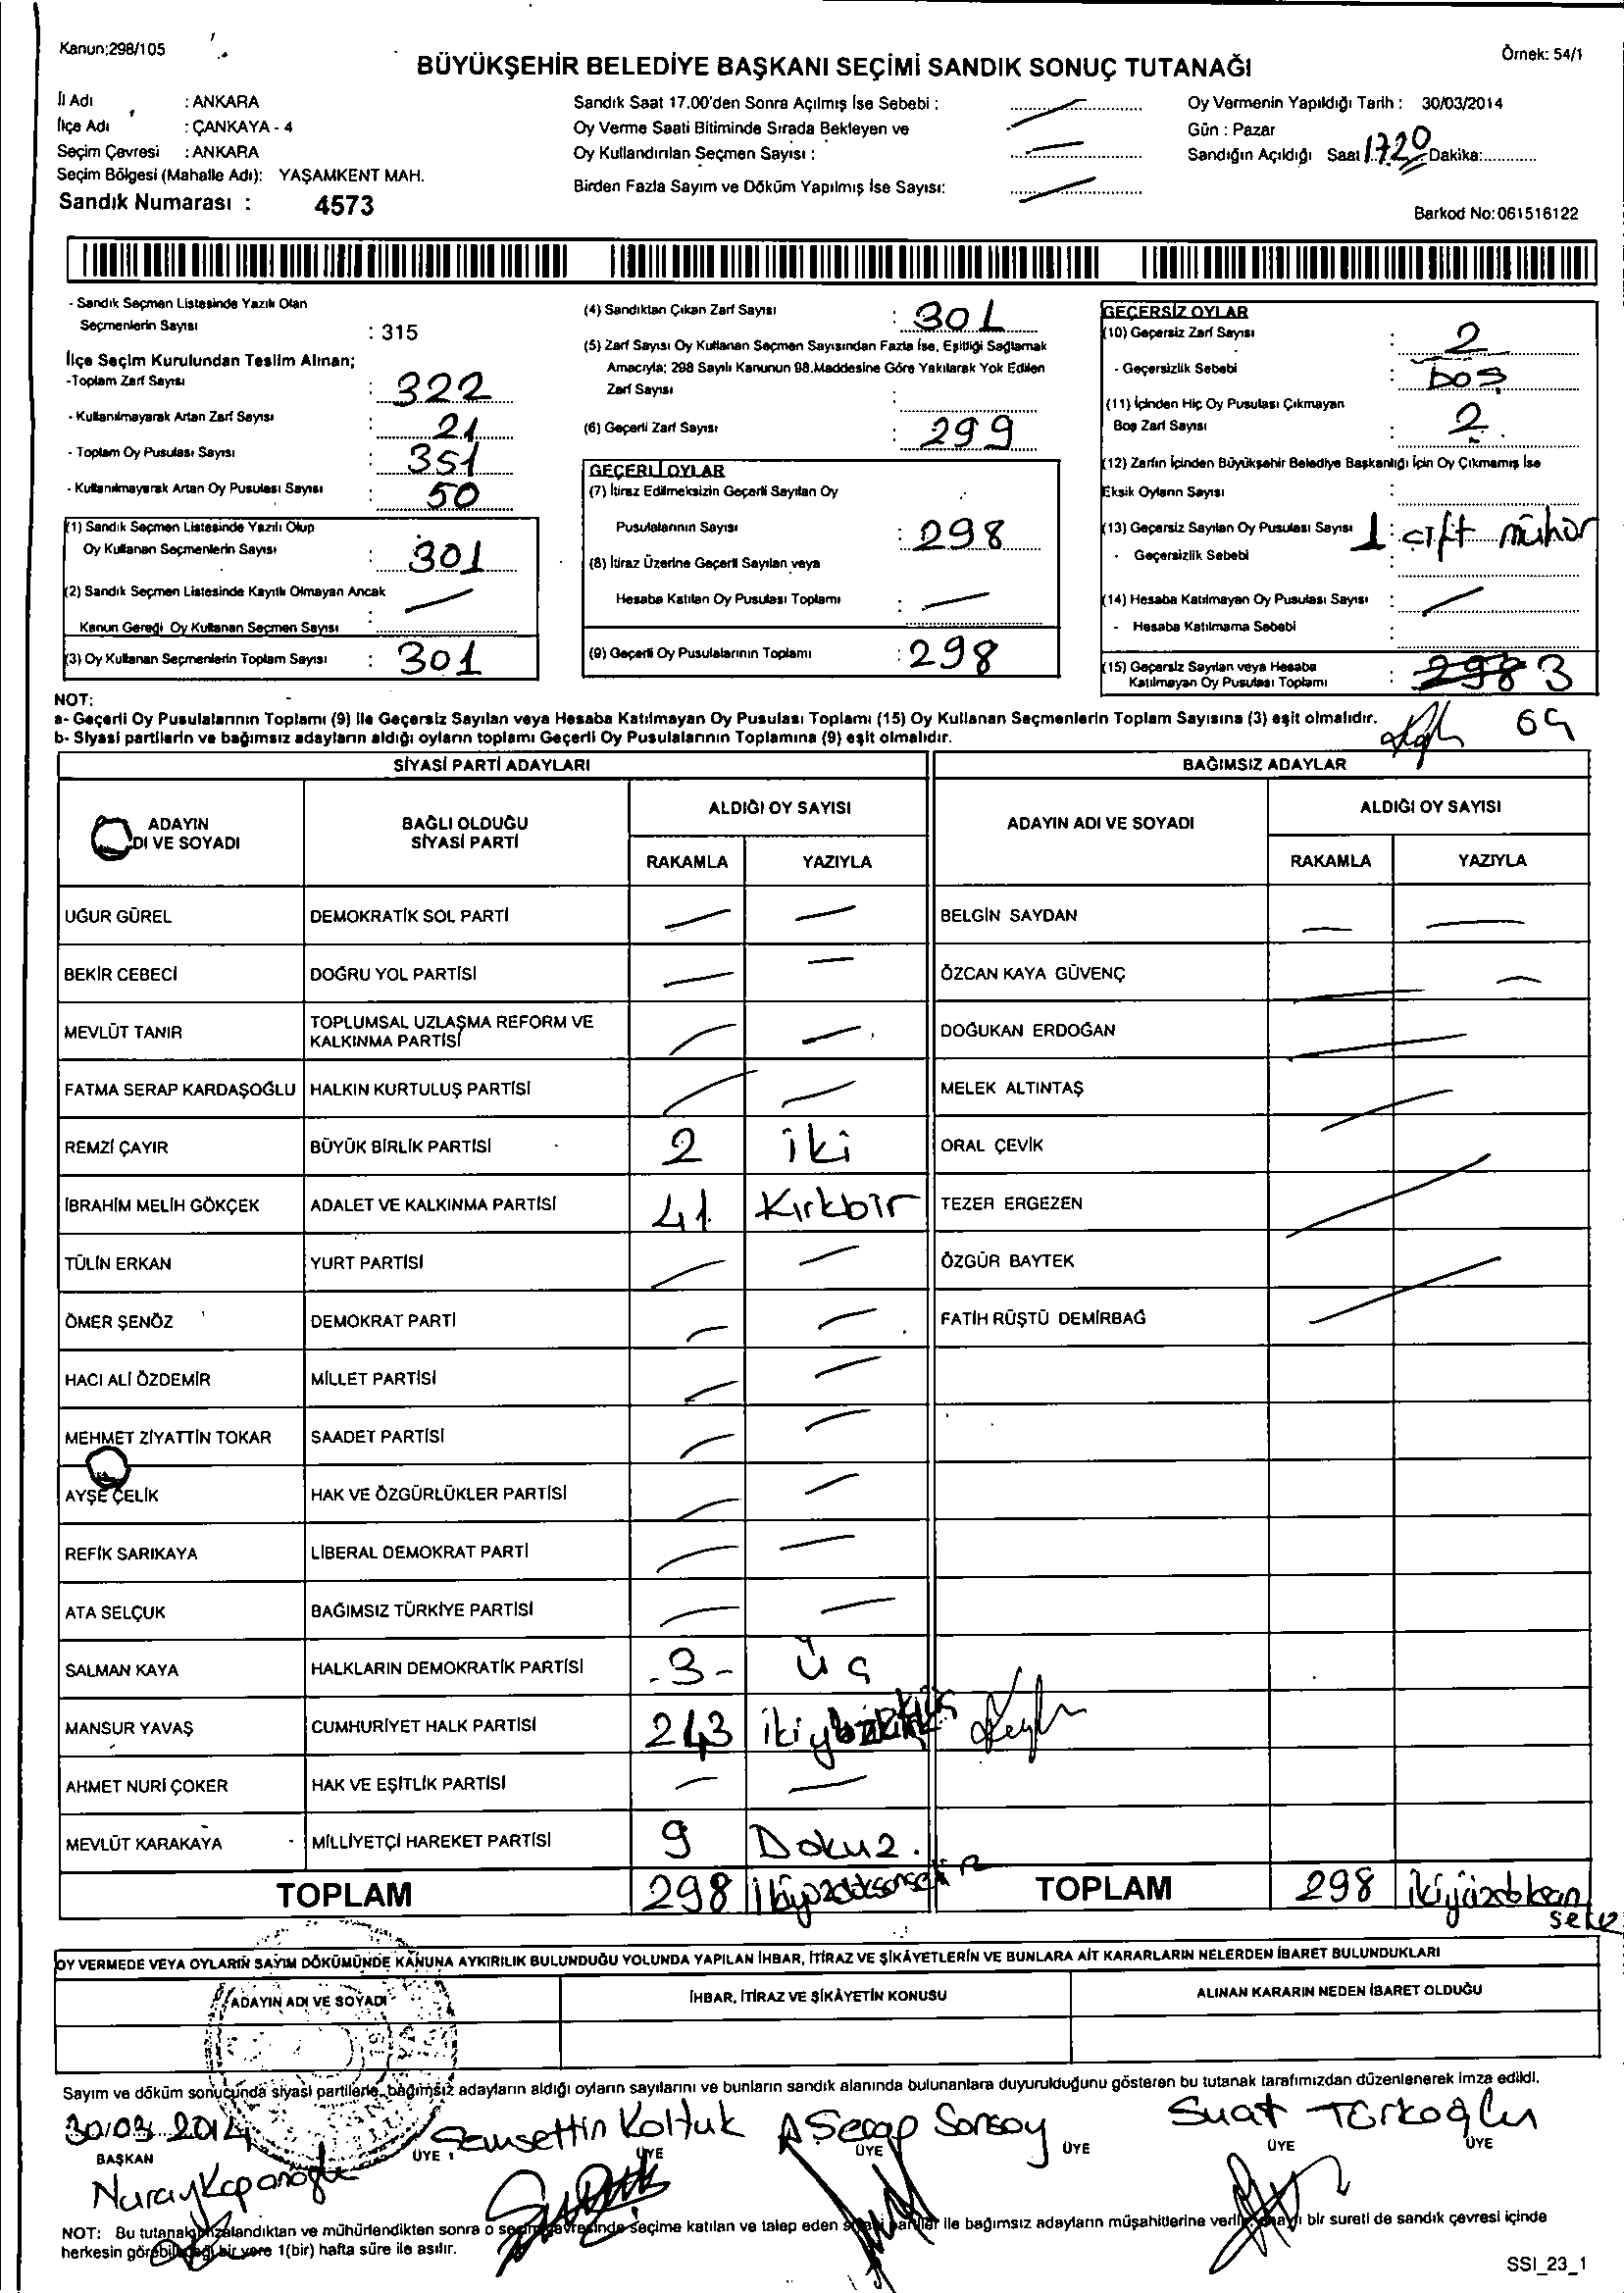 Kanun:298/105
Örnek: 54/1
BÜYÜKŞEHİR BELEDİYE BAŞKANI SEÇİMİ SANDIK SONUÇ TUTANAĞI
İl Adı : ANKARA
İlçe Adı : ÇANKAYA - 4
Seçim Çevresi : ANKARA
Seçim Bölgesi (Mahalle Adı): YAŞAMKENT MAH.
Sandık Numarası : 4573
Sandık Saat 17.00'den Sonra Açılmış İse Sebebi :
Oy Verme Saati Bitiminde Sırada Bekleyen ve
Oy Kullandırılan Seçmen Sayısı :
Birden Fazla Sayım ve Döküm Yapılmış İse Sayısı:
Oy Vermenin Yapıldığı Tarih : 30/03/2014
Gün : Pazar
Sandığın Açıldığı Saat 17.20 Dakika:
Barkod No:061516122
- Sandık Seçmen Listesinde Yazılı Olan
Seçmenlerin Sayısı : 315
İlçe Seçim Kurulundan Teslim Alınan;
-Toplam Zarf Sayısı : 322
- Kullanılmayarak Artan Zarf Sayısı : 21
- Toplam Oy Pusulası Sayısı : 351
- Kullanılmayarak Artan Oy Pusulası Sayısı : 50
(1) Sandık Seçmen Listesinde Yazılı Olup
Oy Kullanan Seçmenlerin Sayısı : 301
(2) Sandık Seçmen Listesinde Kayıtlı Olmayan Ancak
Kanun Gereği Oy Kullanan Seçmen Sayısı :
(3) Oy Kullanan Seçmenlerin Toplam Sayısı : 301
(4) Sandıktan Çıkan Zarf Sayısı : 301
(5) Zarf Sayısı Oy Kullanan Seçmen Sayısından Fazla İse, Eşitliği Sağlamak
Amacıyla; 298 Sayılı Kanunun 98.Maddesine Göre Yakılarak Yok Edilen
Zarf Sayısı :
(6) Geçerli Zarf Sayısı : 299
GEÇERLİ OYLAR
(7) İtiraz Edilmeksizin Geçerli Sayılan Oy
Pusulalarının Sayısı : 298
(8) İtiraz Üzerine Geçerli Sayılan veya
Hesaba Katılan Oy Pusulası Toplamı :
(9) Geçerli Oy Pusulalarının Toplamı : 298
GEÇERSİZ OYLAR
(10) Geçersiz Zarf Sayısı : 2
- Geçersizlik Sebebi : boş
(11) İçinden Hiç Oy Pusulası Çıkmayan
Boş Zarf Sayısı : 2
(12) Zarfın İçinden Büyükşehir Belediye Başkanlığı İçin Oy Çıkmamış İse
Eksik Oyların Sayısı :
(13) Geçersiz Sayılan Oy Pusulası Sayısı 1 : çift mühür
- Geçersizlik Sebebi :
(14) Hesaba Katılmayan Oy Pusulası Sayısı :
- Hesaba Katılmama Sebebi :
(15) Geçersiz Sayılan veya Hesaba
Katılmayan Oy Pusulası Toplamı : 298 3
NOT:
a- Geçerli Oy Pusulalarının Toplamı (9) ile Geçersiz Sayılan veya Hesaba Katılmayan Oy Pusulası Toplamı (15) Oy Kullanan Seçmenlerin Toplam Sayısına (3) eşit olmalıdır.
b- Siyasi partilerin ve bağımsız adayların aldığı oyların toplamı Geçerli Oy Pusulalarının Toplamına (9) eşit olmalıdır.
SİYASİ PARTİ ADAYLARI
BAĞIMSIZ ADAYLAR
ADAYIN
DI VE SOYADI
BAĞLI OLDUĞU
SİYASİ PARTİ
ALDIĞI OY SAYISI
RAKAMLA YAZIYLA
ADAYIN ADI VE SOYADI
ALDIĞI OY SAYISI
RAKAMLA YAZIYLA
UĞUR GÜREL DEMOKRATİK SOL PARTİ BELGİN SAYDAN
BEKİR CEBECİ DOĞRU YOL PARTİSİ ÖZCAN KAYA GÜVENÇ
MEVLÜT TANIR TOPLUMSAL UZLAŞMA REFORM VE
KALKINMA PARTİSİ DOĞUKAN ERDOĞAN
FATMA SERAP KARDAŞOĞLU HALKIN KURTULUŞ PARTİSİ MELEK ALTINTAŞ
REMZİ ÇAYIR BÜYÜK BİRLİK PARTİSİ 2 iki ORAL ÇEVİK
İBRAHİM MELİH GÖKÇEK ADALET VE KALKINMA PARTİSİ 41 Kırkbir TEZER ERGEZEN
TÜLİN ERKAN YURT PARTİSİ ÖZGÜR BAYTEK
ÖMER ŞENÖZ DEMOKRAT PARTİ FATİH RÜŞTÜ DEMİRBAĞ
HACI ALİ ÖZDEMİR MİLLET PARTİSİ
MEHMET ZİYATTİN TOKAR SAADET PARTİSİ
AYŞE ÇELİK HAK VE ÖZGÜRLÜKLER PARTİSİ
REFİK SARIKAYA LİBERAL DEMOKRAT PARTİ
ATA SELÇUK BAĞIMSIZ TÜRKİYE PARTİSİ
SALMAN KAYA HALKLARIN DEMOKRATİK PARTİSİ -3- Üç
MANSUR YAVAŞ CUMHURİYET HALK PARTİSİ 243
AHMET NURİ ÇOKER HAK VE EŞİTLİK PARTİSİ
MEVLÜT KARAKAYA MİLLİYETÇİ HAREKET PARTİSİ 9 Dokuz.
TOPLAM 298 ikiyüzdoksansekiz TOPLAM 298 ikiyüzdoksan
sekiz
OY VERMEDE VEYA OYLARIN SAYIM DÖKÜMÜNDE KANUNA AYKIRILIK BULUNDUĞU YOLUNDA YAPILAN İHBAR, İTİRAZ VE ŞİKÂYETLERİN VE BUNLARA AİT KARARLARIN NELERDEN İBARET BULUNDUKLARI
ADAYIN ADI VE SOYADI İHBAR, İTİRAZ VE ŞİKÂYETİN KONUSU ALINAN KARARIN NEDEN İBARET OLDUĞU
Sayım ve döküm sonucunda siyasi partilerle, bağımsız adayların aldığı oyların sayılarını ve bunların sandık alanında bulunanlara duyurulduğunu gösteren bu tutanak tarafımızdan düzenlenerek imza edildi.
30/03/2014 Şemsettin Koltuk Suat Türkoğlu
BAŞKAN ÜYE ÜYE ÜYE ÜYE ÜYE ÜYE
NOT: Bu tutanak imzalandıktan ve mühürlendikten sonra o seçim çevresinde seçime katılan ve talep eden siyasi partiler ile bağımsız adayların müşahitlerine verilir, onaylı bir sureti de sandık çevresi içinde
herkesin görebileceği bir yere 1(bir) hafta süre ile asılır.
SSI_23_1